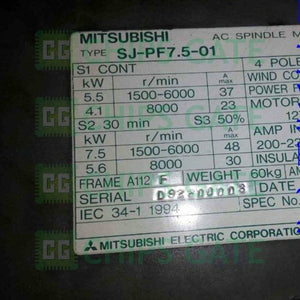 MITSUBISHI AC SPINDLE M
TYPE SJ-PF7.5-01
S1 CONT 4 POLE
kW r/min A max WIND CO
5.5 1500-6000 37 POWER
4.1 8000 23 MOTOR
S2 30 min S3 50%
kW r/min A max AMP IN
7.5 1500-6000 48 200-22
5.6 8000 30 INSULA
FRAME A112 F WEIGHT 60kg AM
SERIAL
IEC 34-1 1994 SPEC No.
MITSUBISHI ELECTRIC CORPORATION
CHIPS GATE